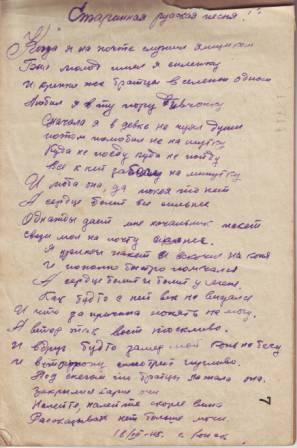 Старинная русская песня!
Когда я на почте служил ямщиком
Был молод имел я силенку
И крепко же братцы в селенье одном
Любил я в ту пору девчонку
Сначала я в девке не чуял беды
потом полюбил не на шутку
Куда не поеду куда не пойду
все к ней заверну на минутку
И люба она, да покоя то нет
А сердце болит все сильнее
Однажды дает мне начальник пакет
свези мол на почту скорее.
Я принял пакет и вскочил на коня
И по полю быстро помчался
А сердце болит и болит у меня
Как будто с ней век не видался
И что за причина понять не могу
А ветер так воет тоскливо.
И вдруг будто замер мой конь на бегу
и в сторону смотрит пугливо.
Под снегом то братцы лежала она.
Закрылися карие очи
Налейте, налейте скорее вина
Рассказывать нет больше мочи
7